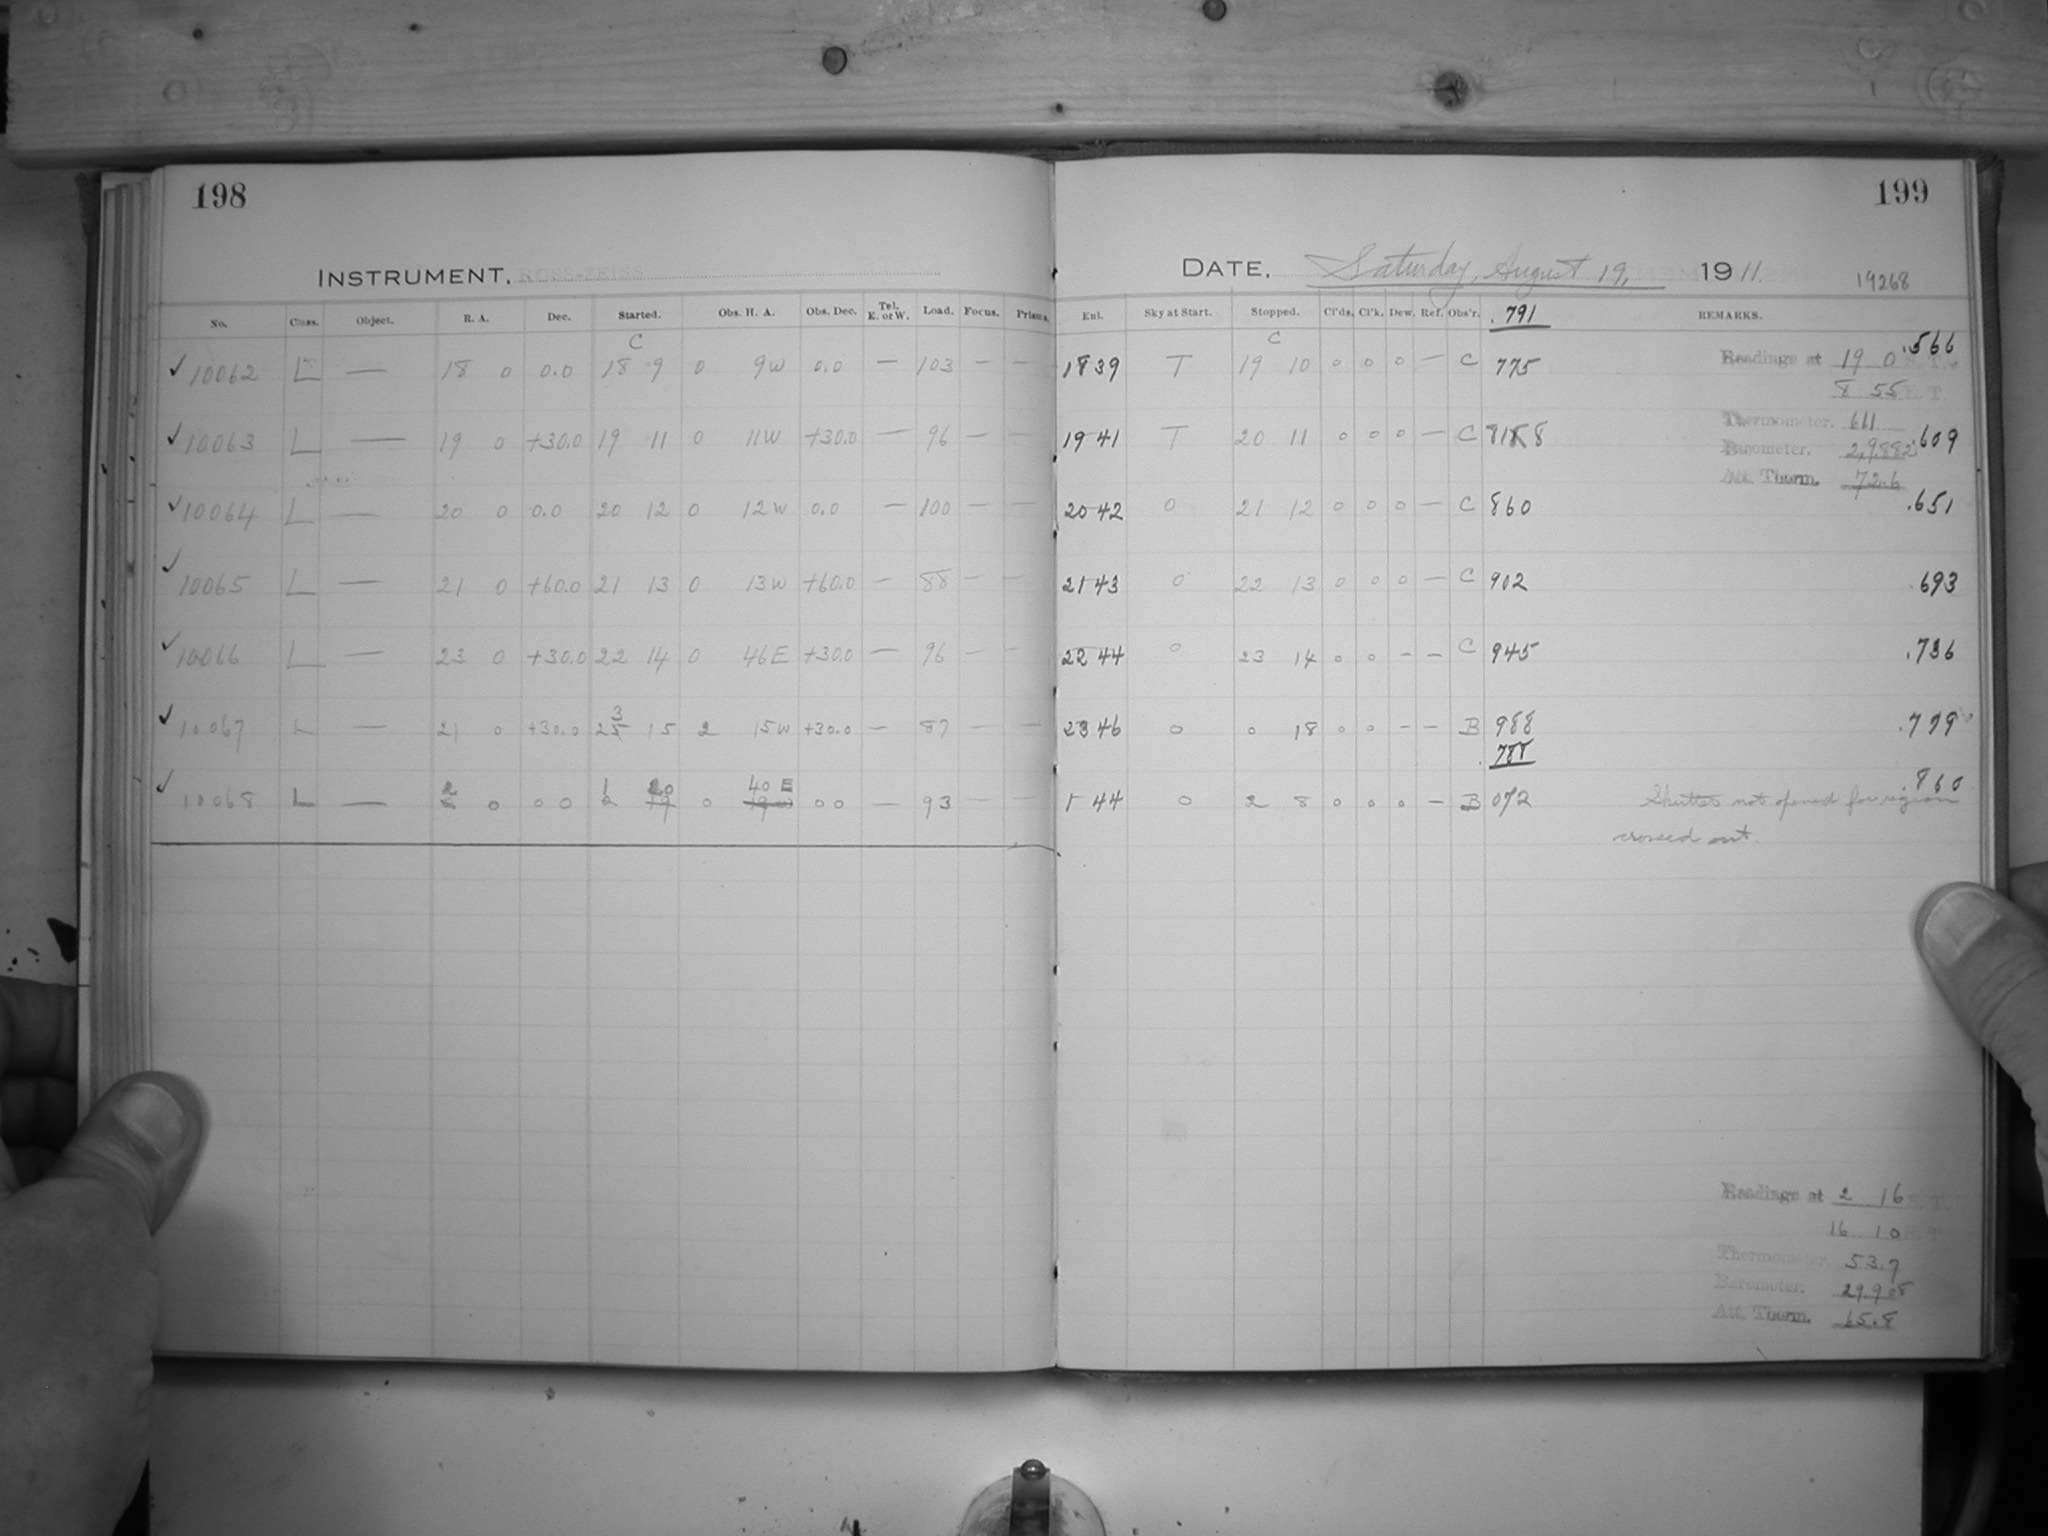 198
199
INSTRUMENT, ROSS-ZEISS
DATE, Saturday, August 19, 1911.
19268
No. Class. Object. R. A. Dec. Started. Obs. H. A. Obs. Dec. Tel. E. or W. Load. Focus. Prisms. Enl. Sky at Start. Stopped. Cl'ds. Cl'k. Dew. Ref. Obs'r. .791 REMARKS.
C C
✓ 10062 L — 18 0 0.0 18 9 0 9W 0.0 — 103 — — 18 39 T 19 10 0 0 0 — C 775 Readings at 19 0 S.T. .566
8 55 E.T.
Thermometer. 611
✓ 10063 L — 19 0 +30.0 19 11 0 11W +30.0 — 96 — — 19 41 T 20 11 0 0 0 — C 818 Barometer. 29.882 .609
Att. Therm. 72.6
✓ 10064 L — 20 0 0.0 20 12 0 12W 0.0 — 100 — — 20 42 0 21 12 0 0 0 — C 860 .651
✓ 10065 L — 21 0 +60.0 21 13 0 13W +60.0 — 88 — — 21 43 0 22 13 0 0 0 — C 902 .693
✓ 10066 L — 23 0 +30.0 22 14 0 46E +30.0 — 96 — — 22 44 0 23 14 0 0 – – C 945 .736
✓ 10067 L — 21 0 +30.0 23 15 2 15W +30.0 — 87 — — 23 46 0 0 18 0 0 – – B 988 .779
.788
✓ 10068 L — 2 0 0 0 1 20 0 40 E 0 0 — 93 — — 1 44 0 2 8 0 0 0 — B 072 .860
Shutter not opened for region
crossed out.
Readings at 2 16 S.T.
16 10 E.T.
Thermometer. 53.7
Barometer. 29.908
Att. Therm. 65.8